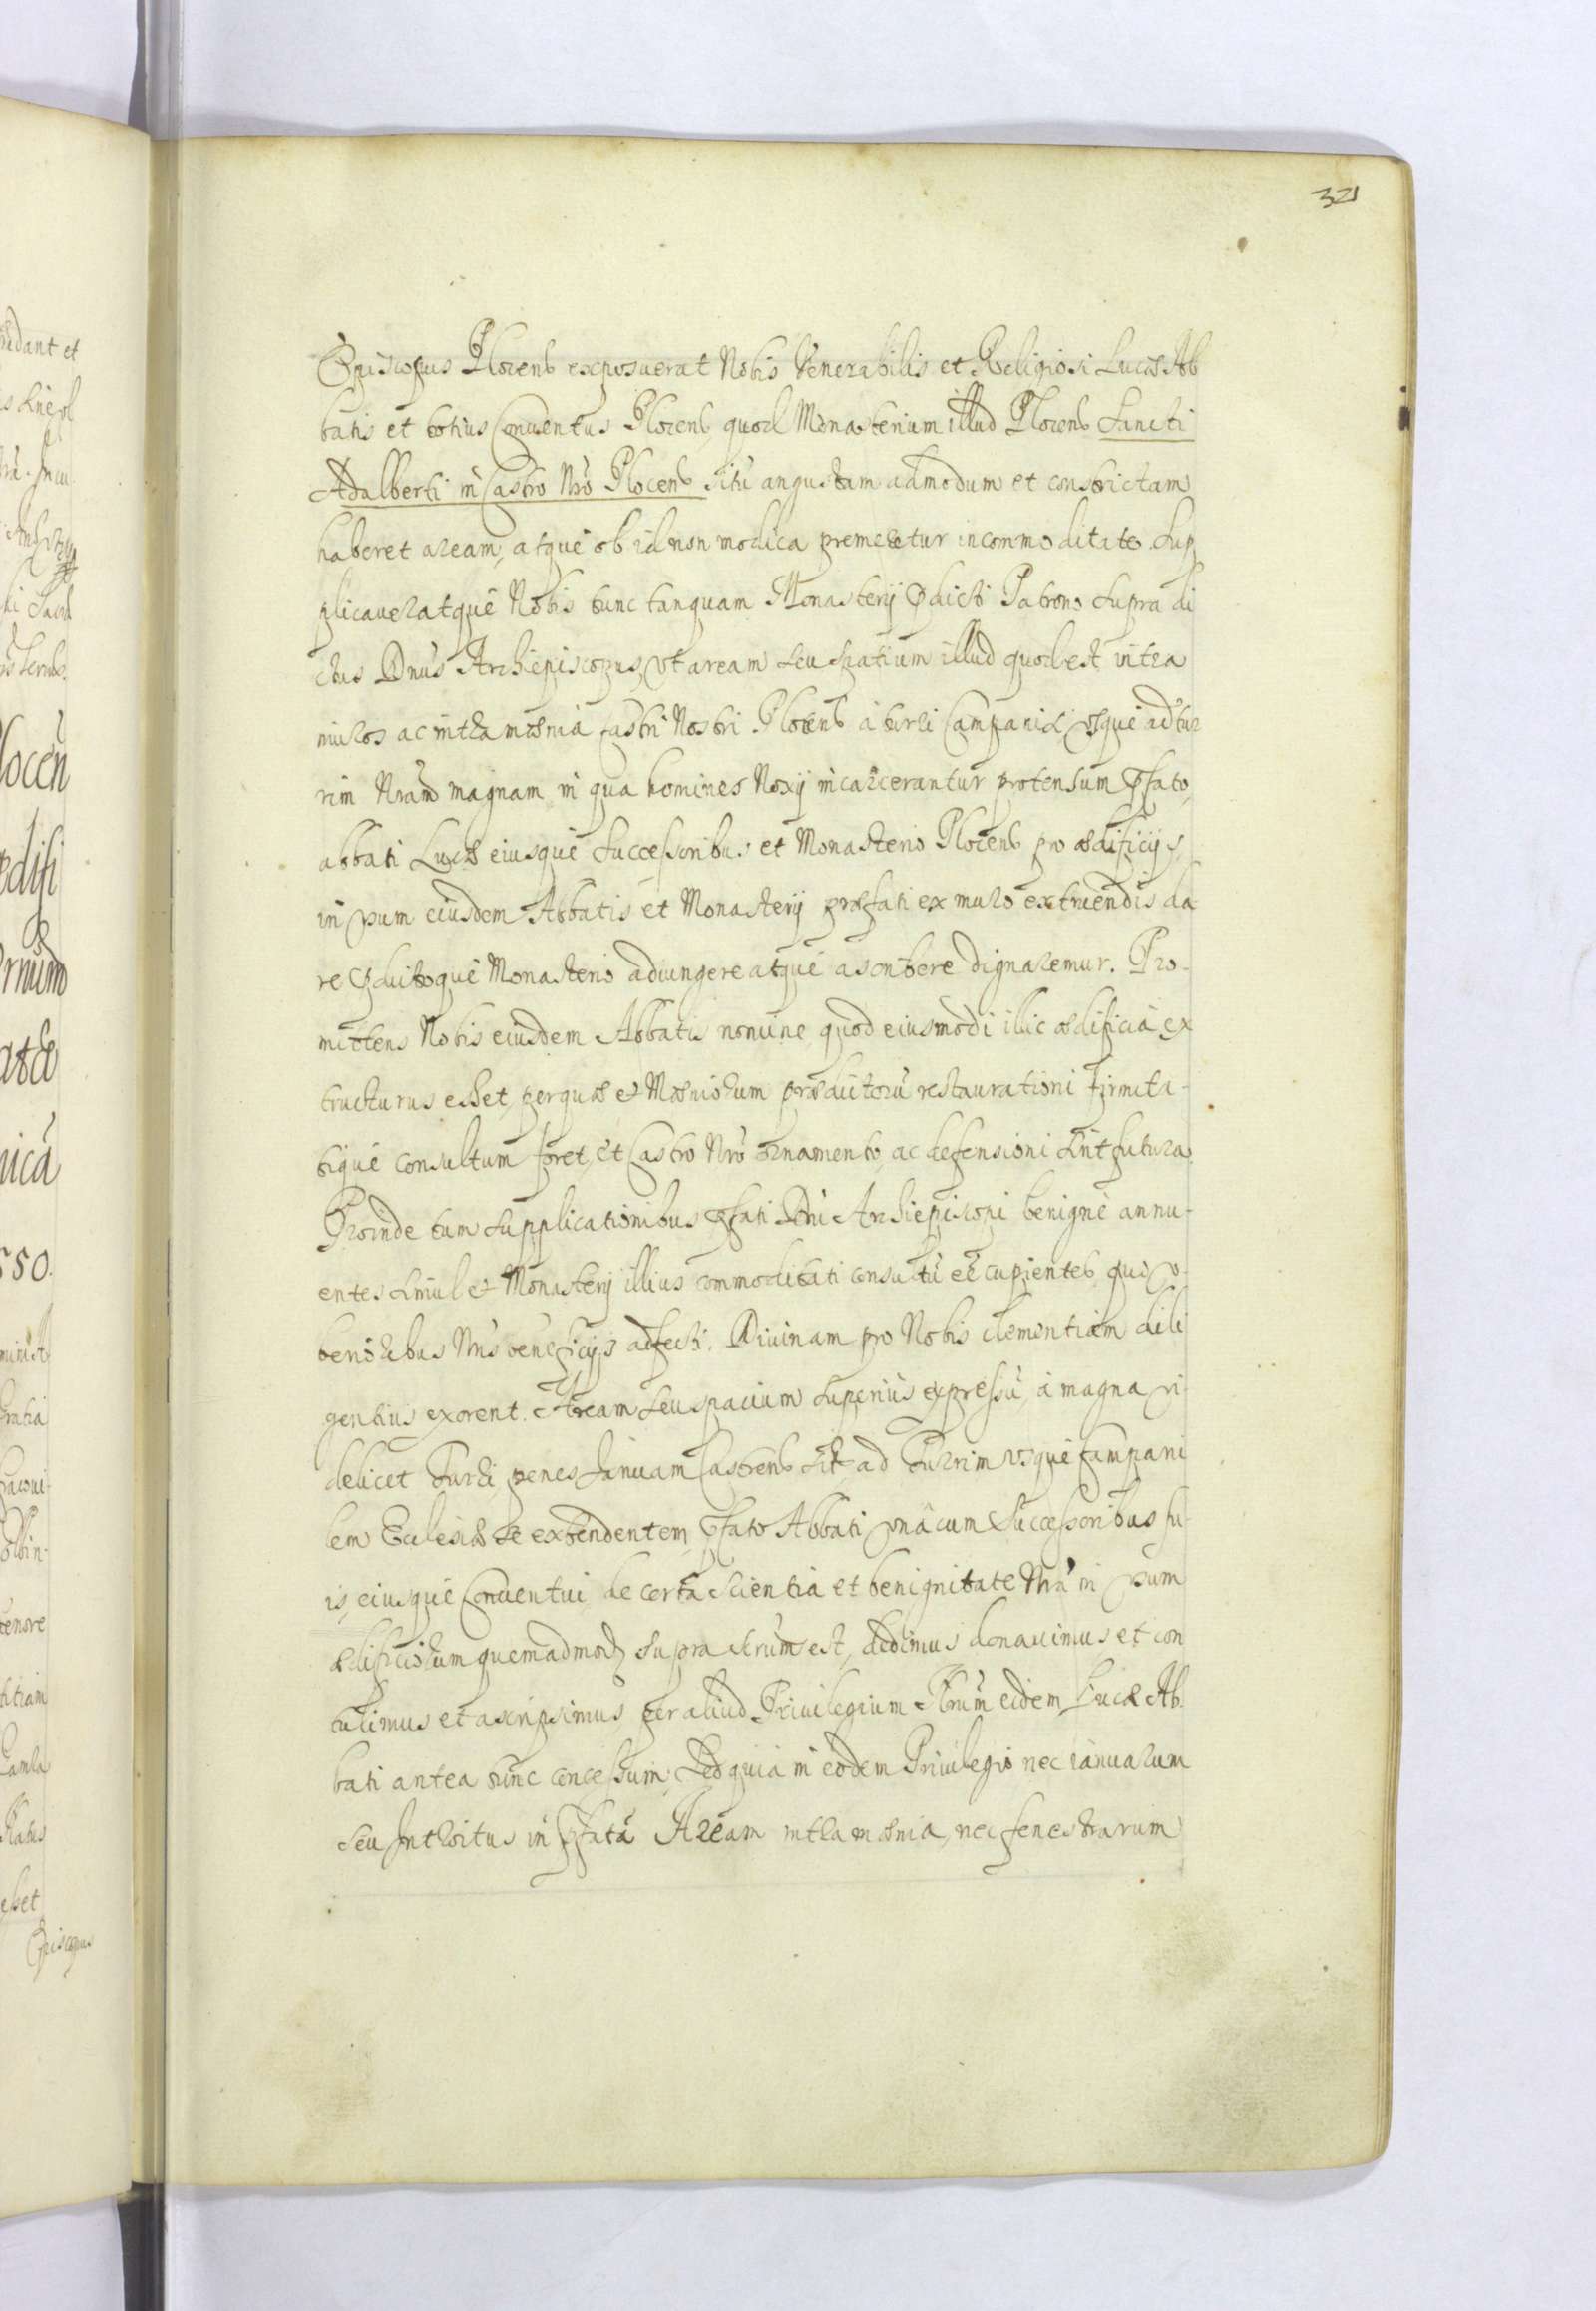 321
Episcopus Plocens exposuerat Nobis Venerabilis et Religiosi Lucæ Ab
batis et totius Conventus Plocens quod Monasterium illud Plocens Sancti
Adalberti in Castro Nrõ Plocens situ angustam admodum et constrictam
haberet aream, atque ob id non modica premeretur incommoditate. Sup
plicaveratque Nobis tunc tanquam Monasterij pdicti Patrono supra di
ctus Dnus Archiepiscopus, vt aream seu spatium illud quod est intra
muros ac intra mœnia Castri Nostri Plocens à turri Campanili vsque ad tur
rim Nram magnam in qua homines Noxij incarcerantur protensum pfato
abbati Lucæ eiusque Successoribus et Monasterio Plocens pro ædificijs
in vsum eiusdem Abbatis et Monasterij præfati ex muro extruendis da
re pdictoque Monasterio adiungere atque ascribere dignaremur. Pro-
mittens Nobis eiusdem Abbatis nomine quod eiusmodi illic ædificia ex
tructurus esset, per quæ et Mœniorum prædictorũ restaurationi firmita-
tique consultum foret, et Castro Nrõ ornamento, ac defensioni sint futura.
Proinde tum supplicationibus pfati Dni Archiepiscopi benigne annu-
entes simul et Monasterij illius commoditati consultũ eẽ cupientes, qui v-
berioribus Nris beneficijs adfecti, Divinam pro Nobis clementiam dili
gentius exorent. Aream seu spacium superius expressũ, à magna vi-
delicet Turri, penes Januam Castrens sit ad Turrim vsque Campani
lem Ecclesiæ se extendentem pfato Abbati vnà cum Successoribus su-
is, eiusque Conventui, de certa scientia et benignitate Nrã in vsum
ædificiorum quemadmodũ supra scrũm est, dedimus donavimus, et con
tulimus et ascripsimus per aliud Privilegium Nrũm eidem Lucæ Ab
bati antea tunc concessum, Sed quia in eodem Privilegio nec ianuarum
seu Introitus in pfatã Aream intra mœnia, nec fenestrarum